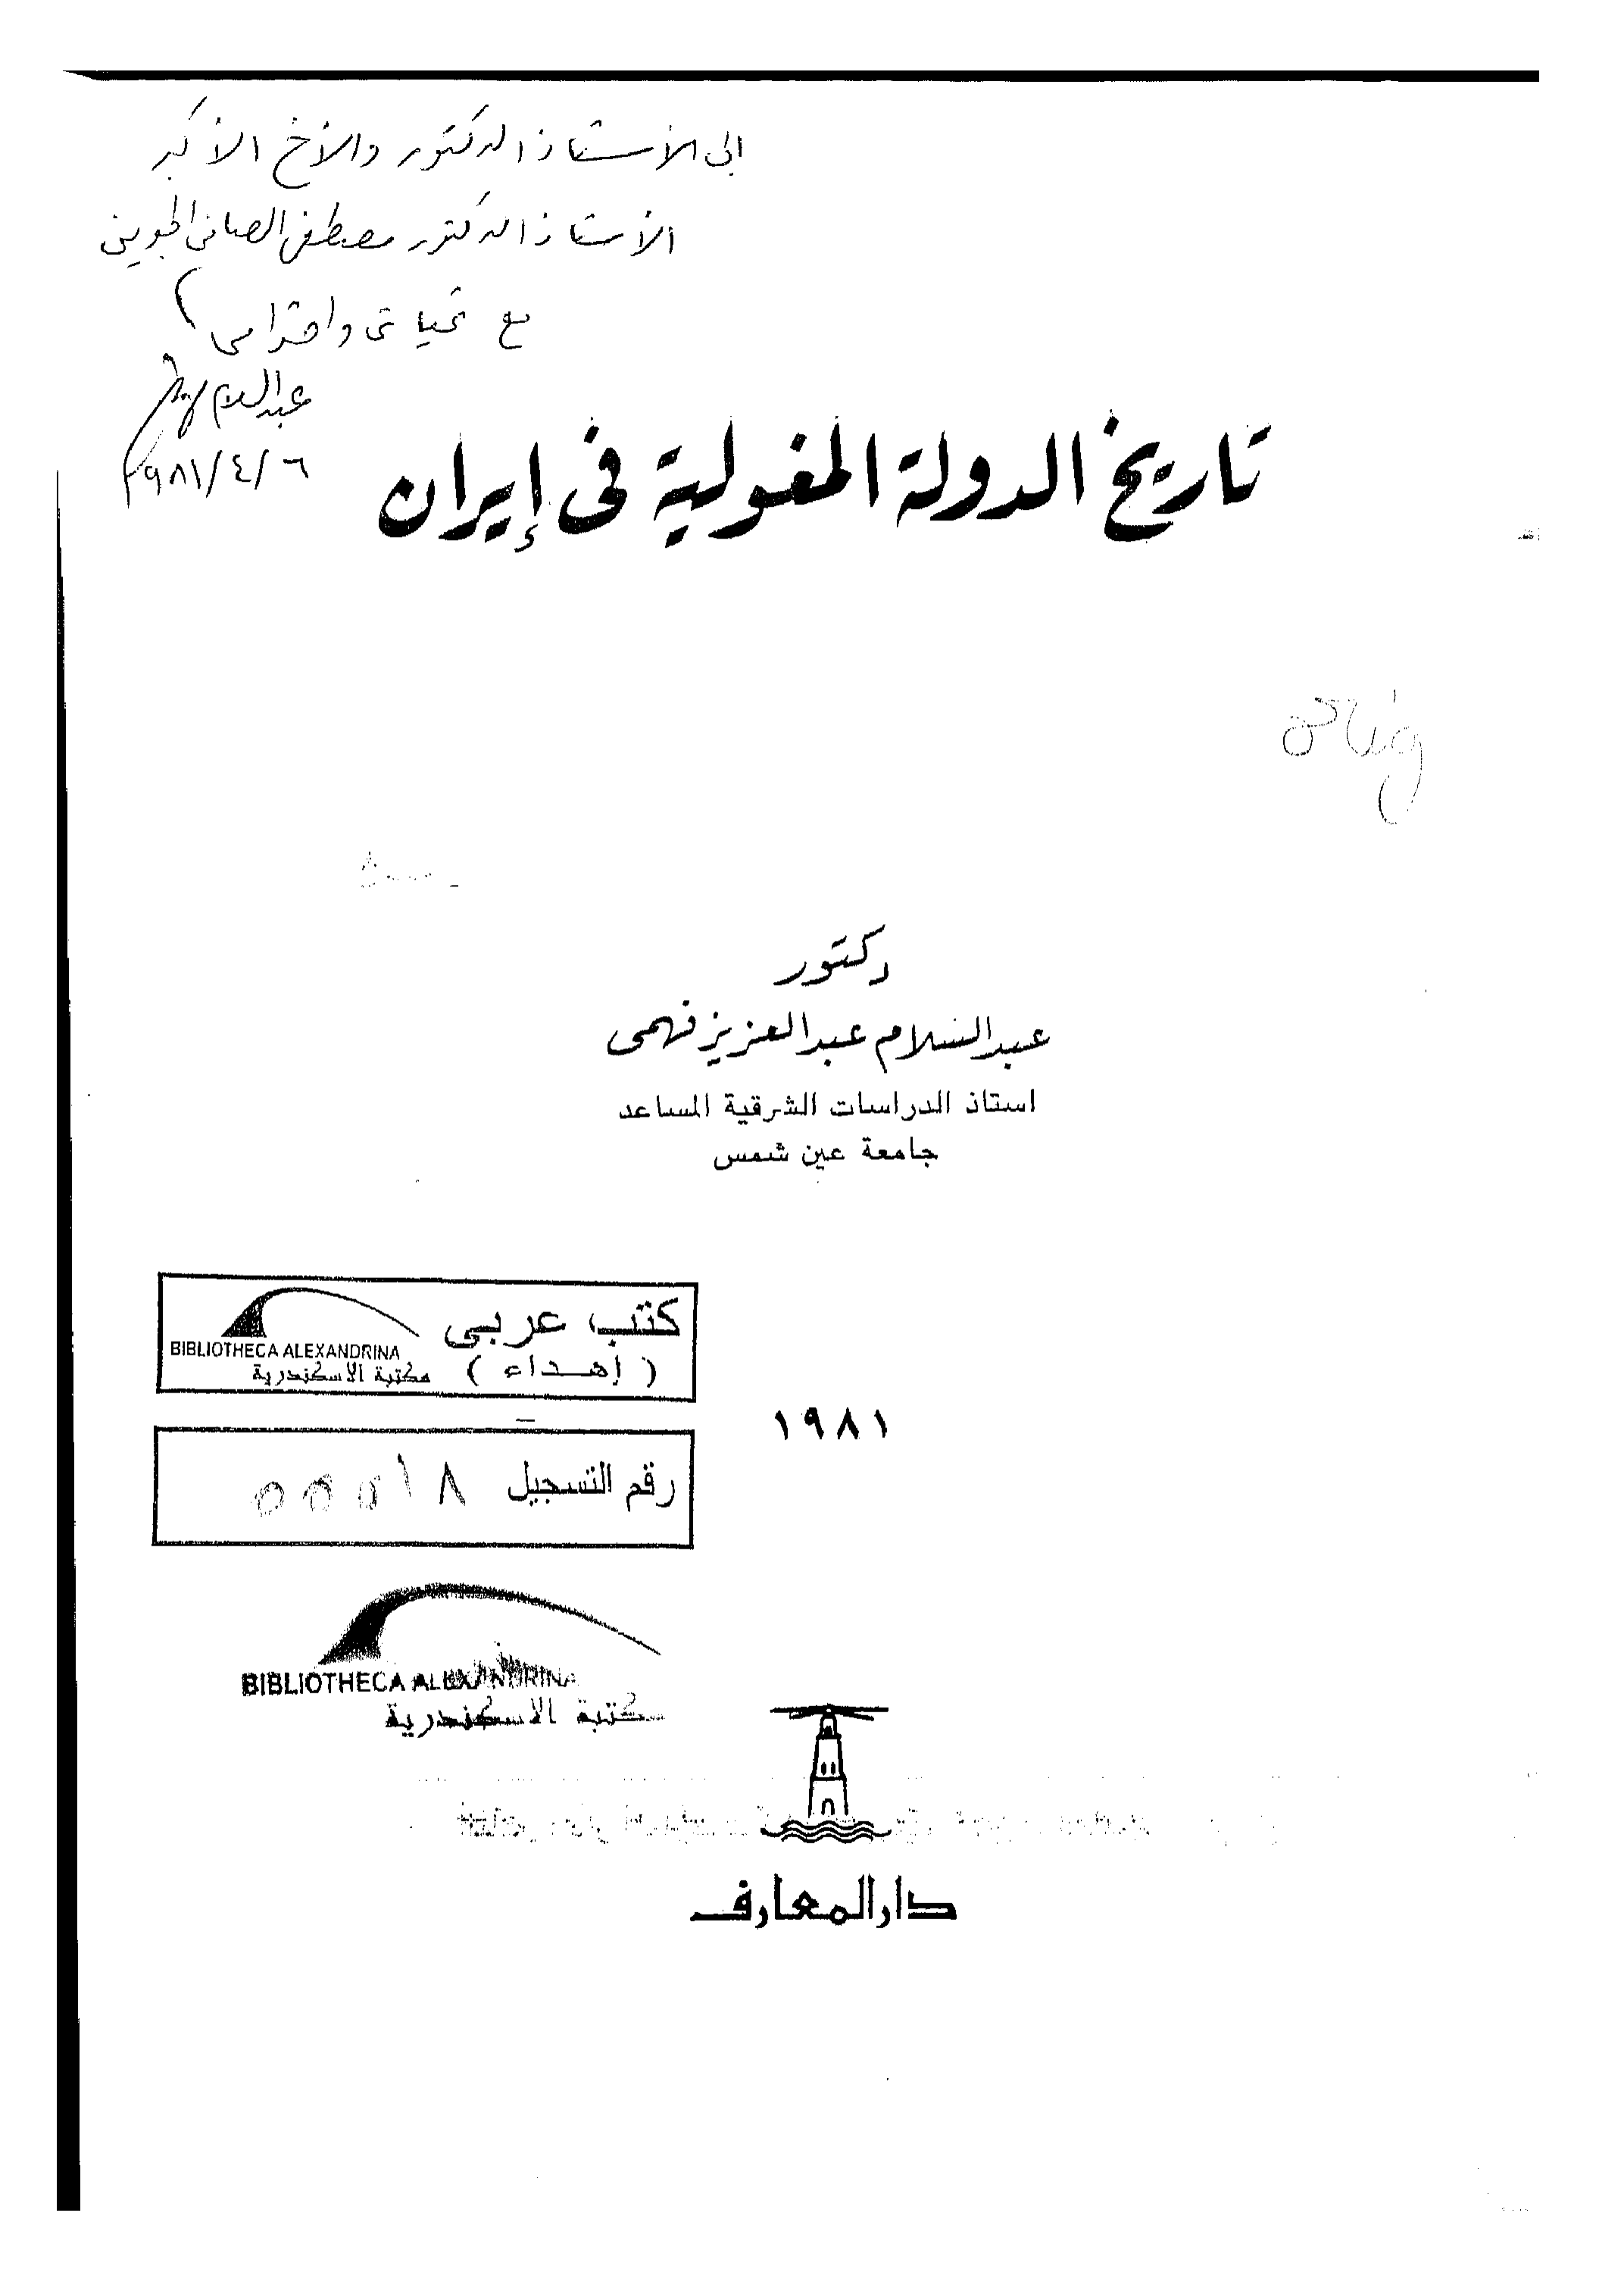 إلى الأستاذ الدكتور والأخ الأكبر
الأستاذ الدكتور مصطفى الصاوى الجوينى
مع تحياتى واحترامى
عبد السلام فهمى
٦/٤/١٩٨١
تاريخ الدولة المغولية فى إيران
دكتور
عبد السلام عبد العزيز فهمى
استاذ الدراسات الشرقية المساعد
جامعة عين شمس
كتب عربى
( إهداء )
BIBLIOTHECA ALEXANDRINA
مكتبة الاسكندرية
١٩٨١
رقم التسجيل
BIBLIOTHECA ALEXANDRINA
مكتبة الاسكندرية
دار المعارف